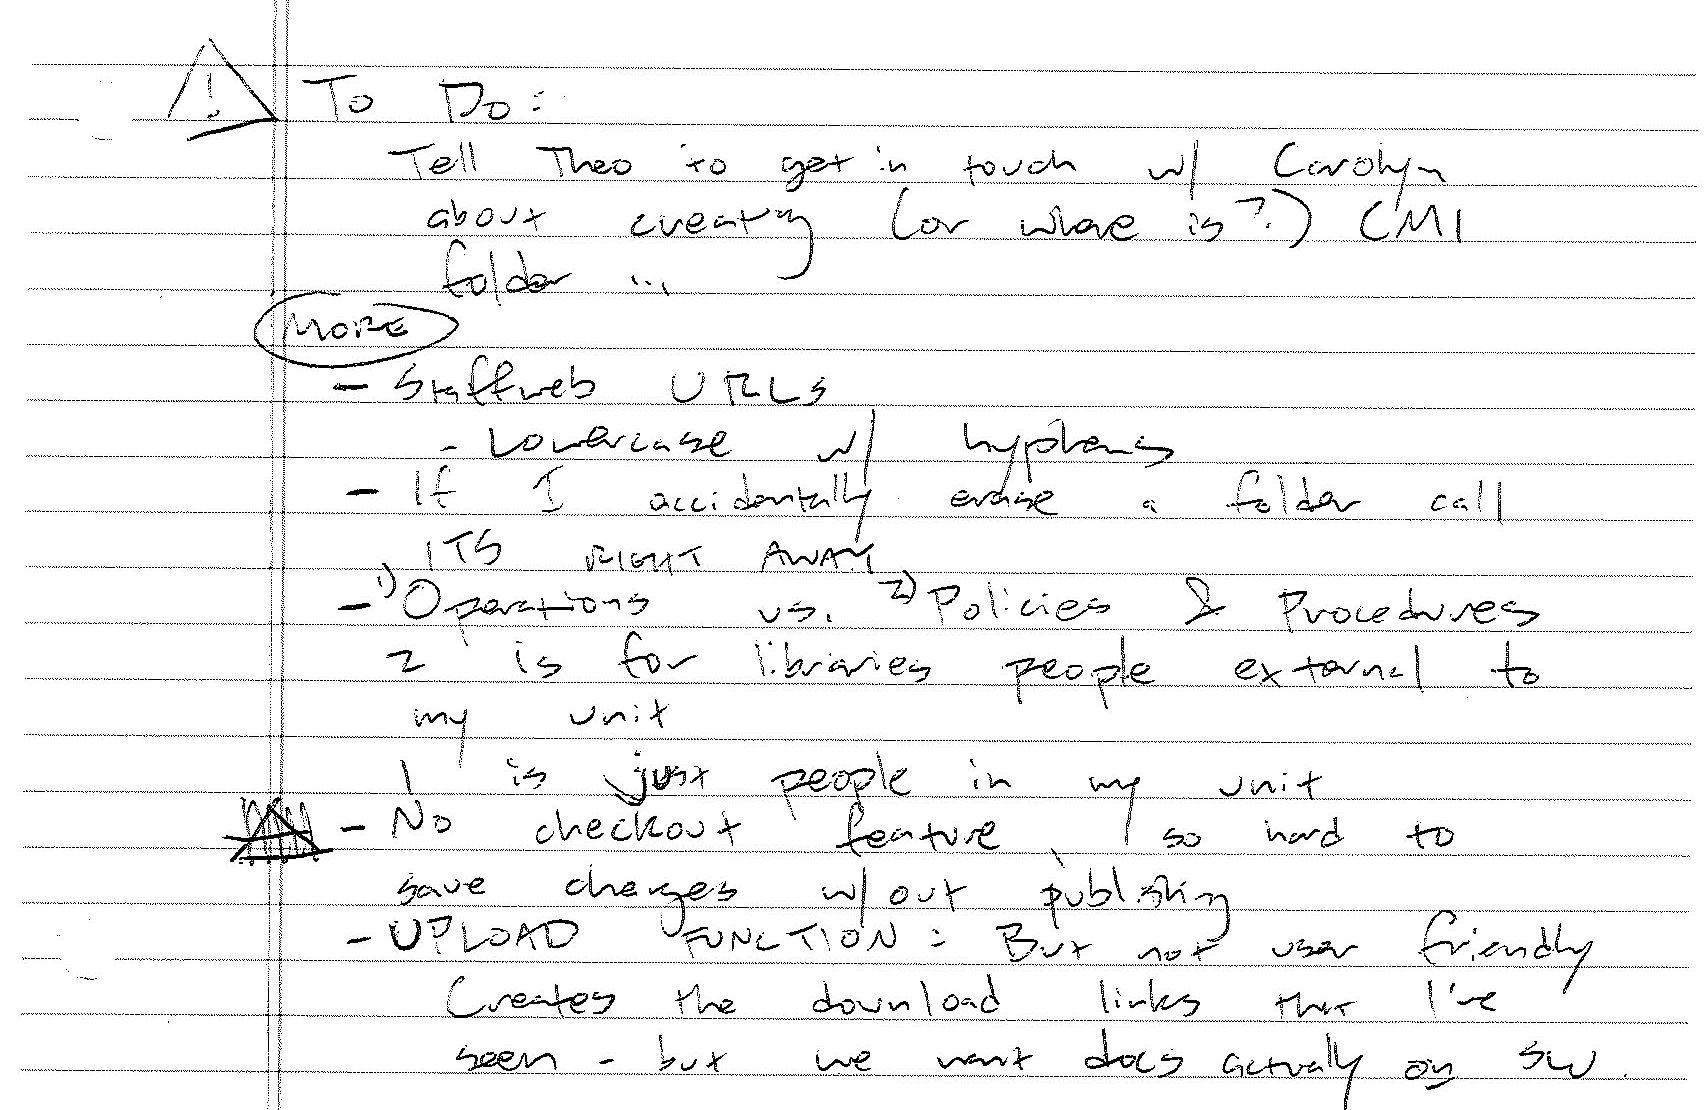 ! To Do:
Tell Theo to get in touch w/ Carolyn
about creating (or where is?) CMI
folder ...
MORE
- Staffweb URLs
- Lowercase w/ hyphens
- If I accidentally erase a folder call
ITS RIGHT AWAY
- 1) Operations vs. 2) Policies & Procedures
2 is for libraries people external to
my unit
1 is just people in my unit
- No checkout feature, so hard to
save changes w/out publishing
- UPLOAD FUNCTION: But not user friendly
Creates the download links that I've
seen - but we want docs actually on SW.